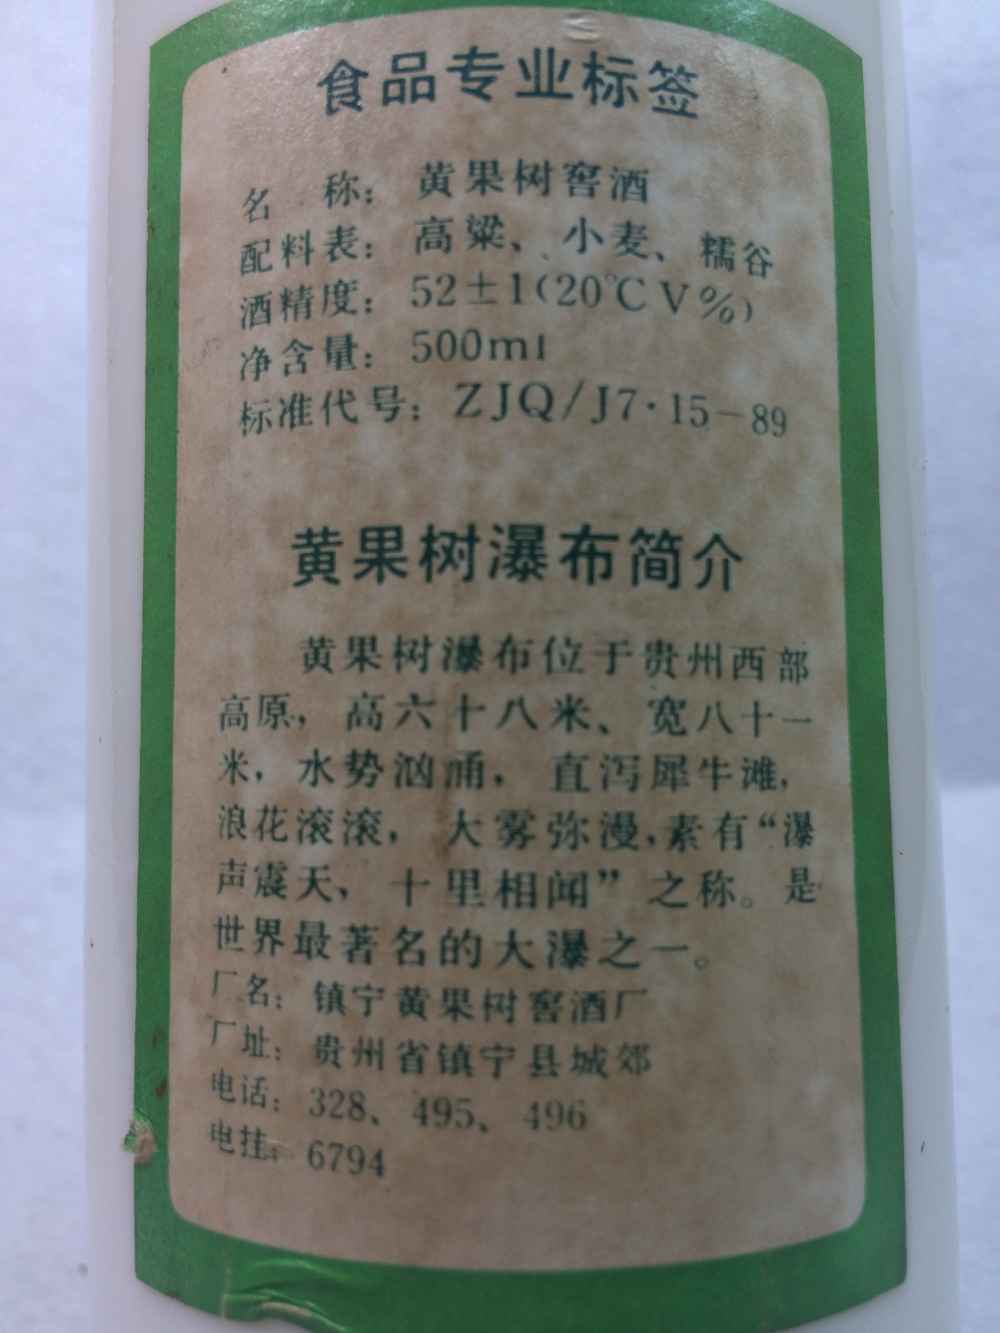 食品专业标签
名 称：黄果树窖酒
配料表：高粱、小麦、糯谷
酒精度：52±1(20℃V%)
净含量：500ml
标准代号：ZJQ/J7·15—89
黄果树瀑布简介
黄果树瀑布位于贵州西部
高原，高六十八米、宽八十一
米，水势汹涌，直泻犀牛滩，
浪花滚滚，大雾弥漫，素有“瀑
声震天、十里相闻”之称。是
世界最著名的大瀑之一。
厂名：镇宁黄果树窖酒厂
厂址：贵州省镇宁县城郊
电话：328、495、496
电挂：6794